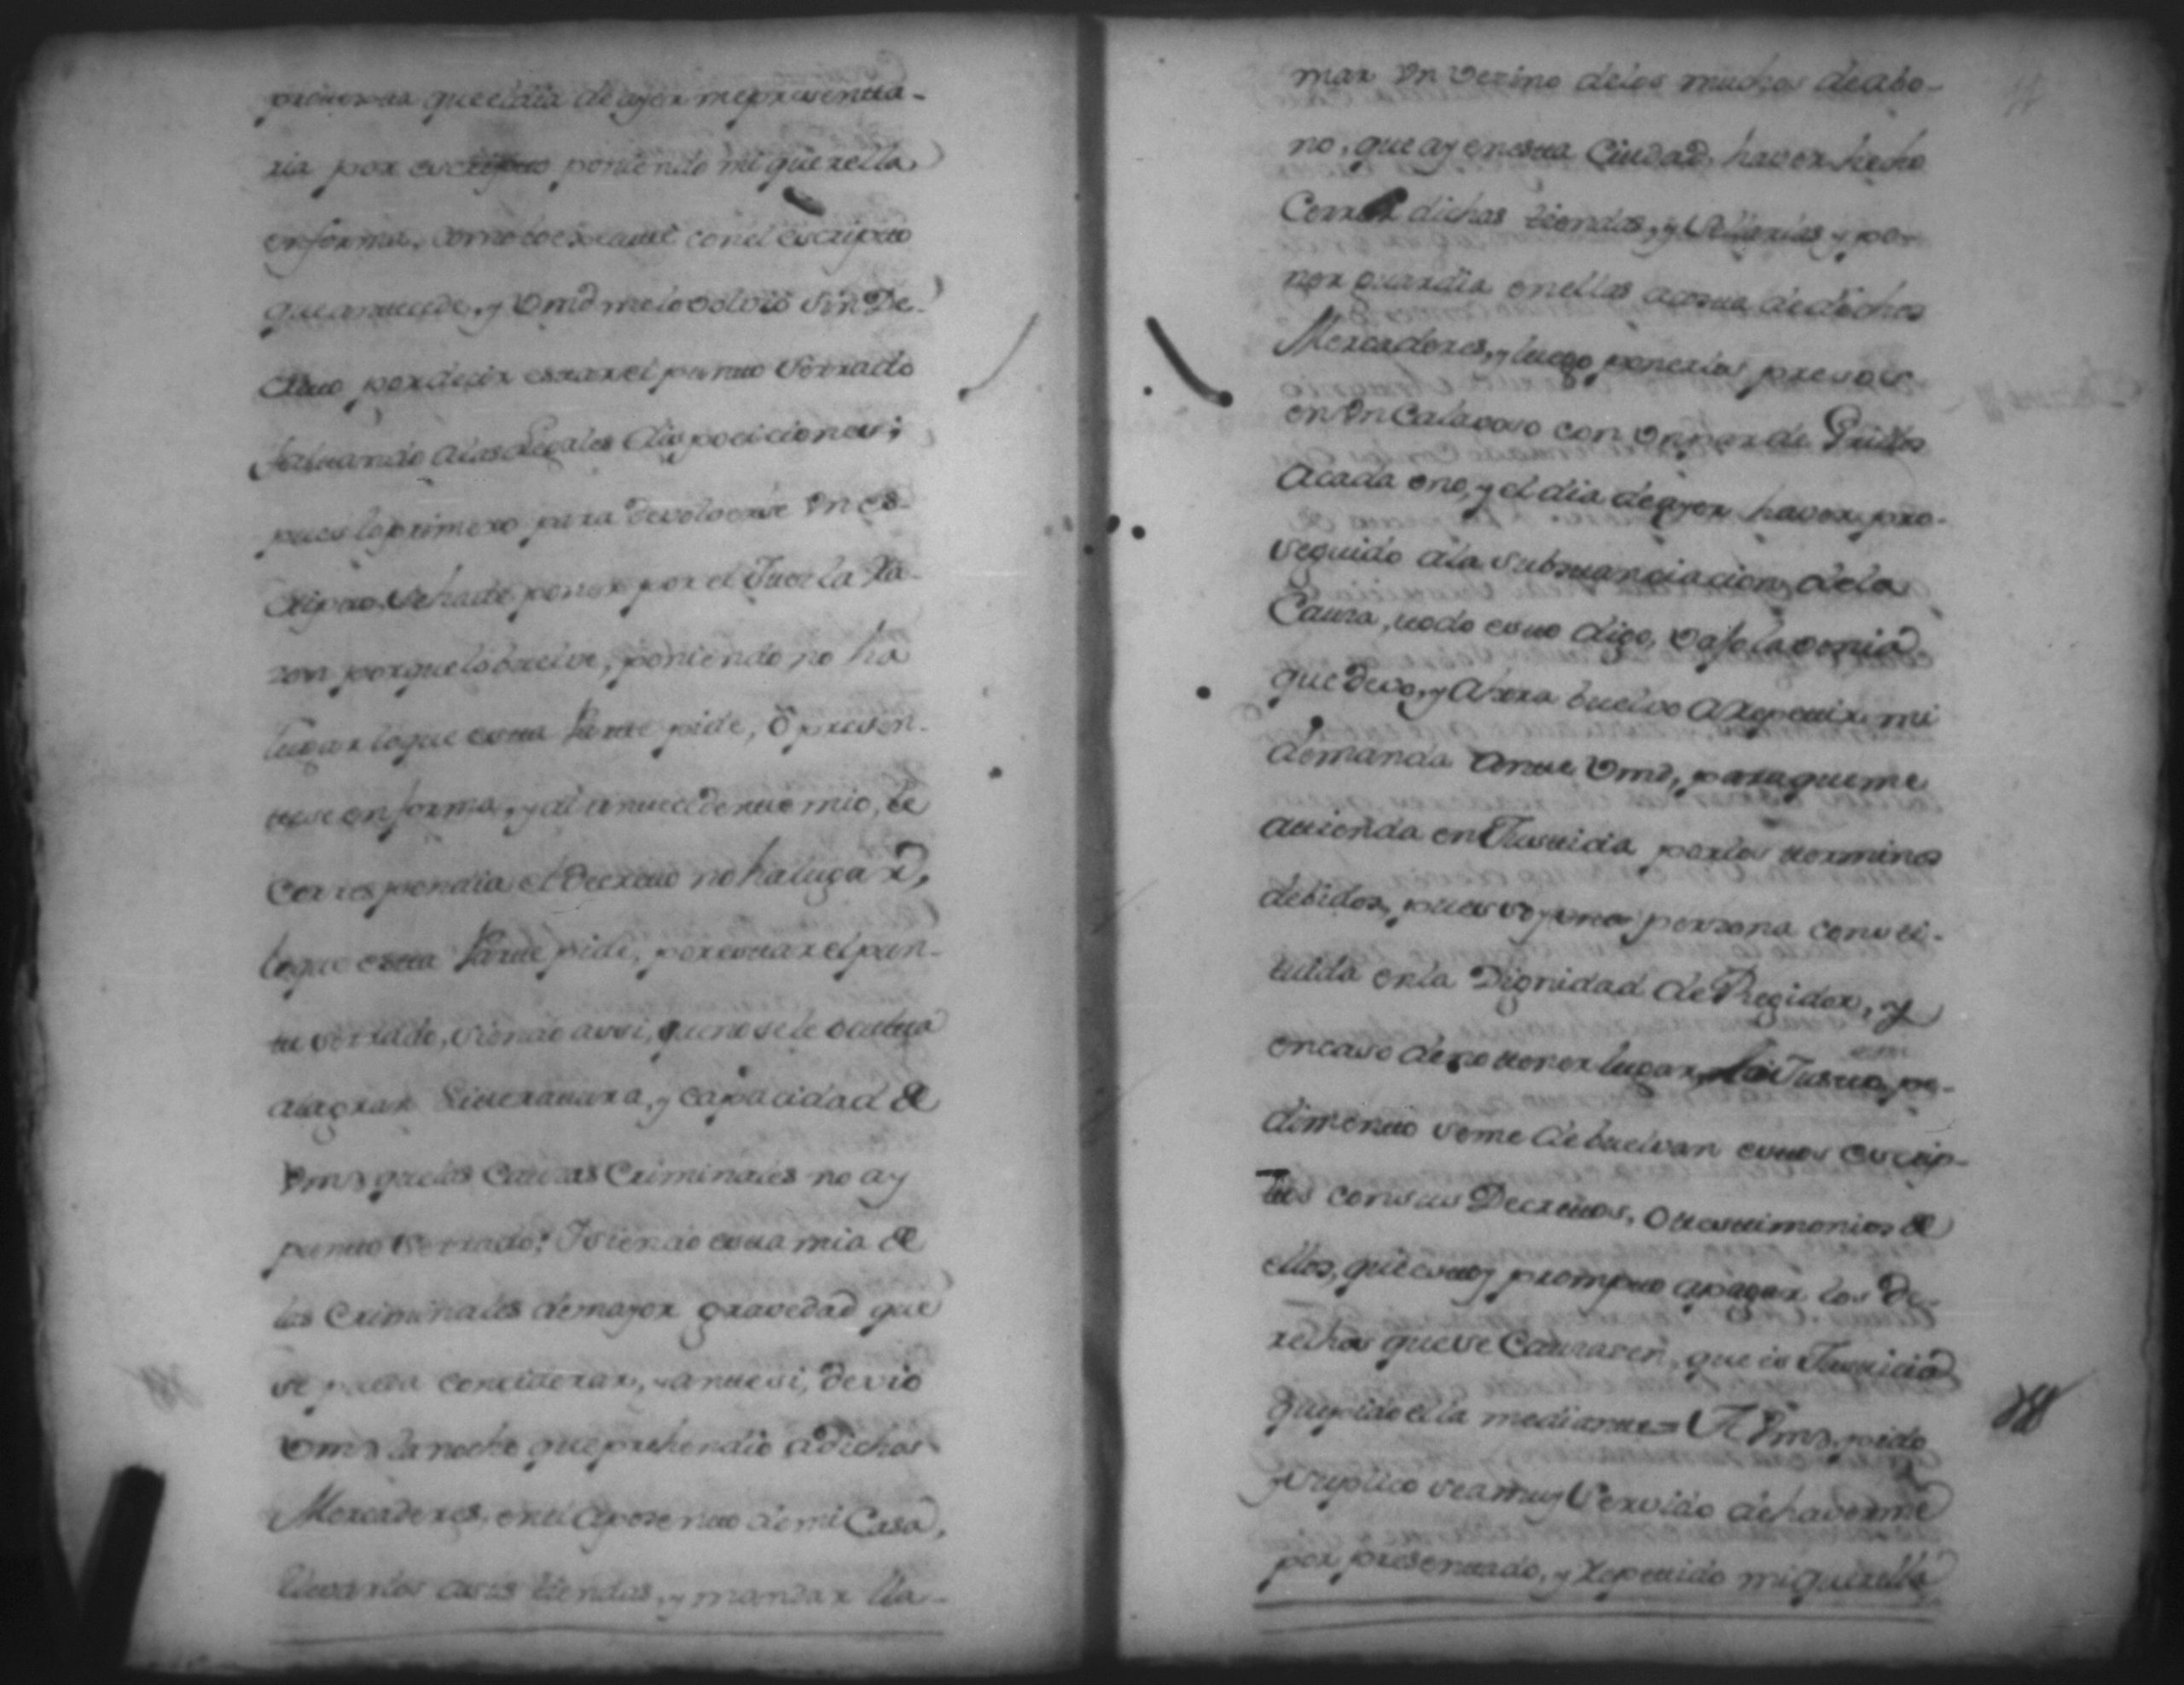 protesta que el dia de ayer me presenta-
ria por escripto poniendo mi querella
en forma, como lo executé con el escripto
que antecede, y Vmd me lo volvio sin De-
creto por decir estar el punto Serrado
faltando a las Legales disposiciones;
pues lo primero para devolverse Vn es-
cripto, se ha de poner por el Juez la Ra-
zon porque lo buelve, poniendo no ha
lugar lo que esta Parte pide, ô presen-
tese en forma, y al antecedente mio, le
correspondia el Decreto no ha lugar,
lo que esta Parte pide, por estar el pun-
to serrado, siendo assi, que no se le oculta
a la gran Literatura, y capacidad de
Vmd que las Causas Criminales no ay
punto serrado; Y siendo esta mia de
las Criminales de mayor gravedad que
se pueda considerar, antes si, devio
Vmd la noche que prehendio a dichos
Mercaderes, en el aposento de mi Casa,
llevarlos a sus tiendas, y mandar lla-
mar Vn vezino de los muchos de abo-
no, que ay en esta Ciudad, haver hecho
Cerrar dichas tiendas, y Sellarlas y po-
ner guardia en ellas a costa de dichos
Mercaderes, y luego ponerlos presos
en Vn Calavoso con Vn par de Grillos
a cada uno, y el dia de ayer haver pro-
seguido a la substanciacion de la
Causa, todo esto digo, vajo la venia
que devo, y Ahora buelvo a Repetir mi
demanda ante Vmd, para que me
atienda en Justicia por los terminos
debidos, pues soy una persona consti-
tuida en la Dignidad de Regidor, y
en caso de no tener lugar mi Justo pe-
dimento se me debuelvan estos escrip-
tos con sus Decretos, o testimonios de
ellos, que estoy prompto a pagar los De-
rechos que se Causaren, que es Justicia
que pido ella mediante = A Vmd pido
y suplico sea muy Servido de haverme
por presentado, y Repetido mi querella